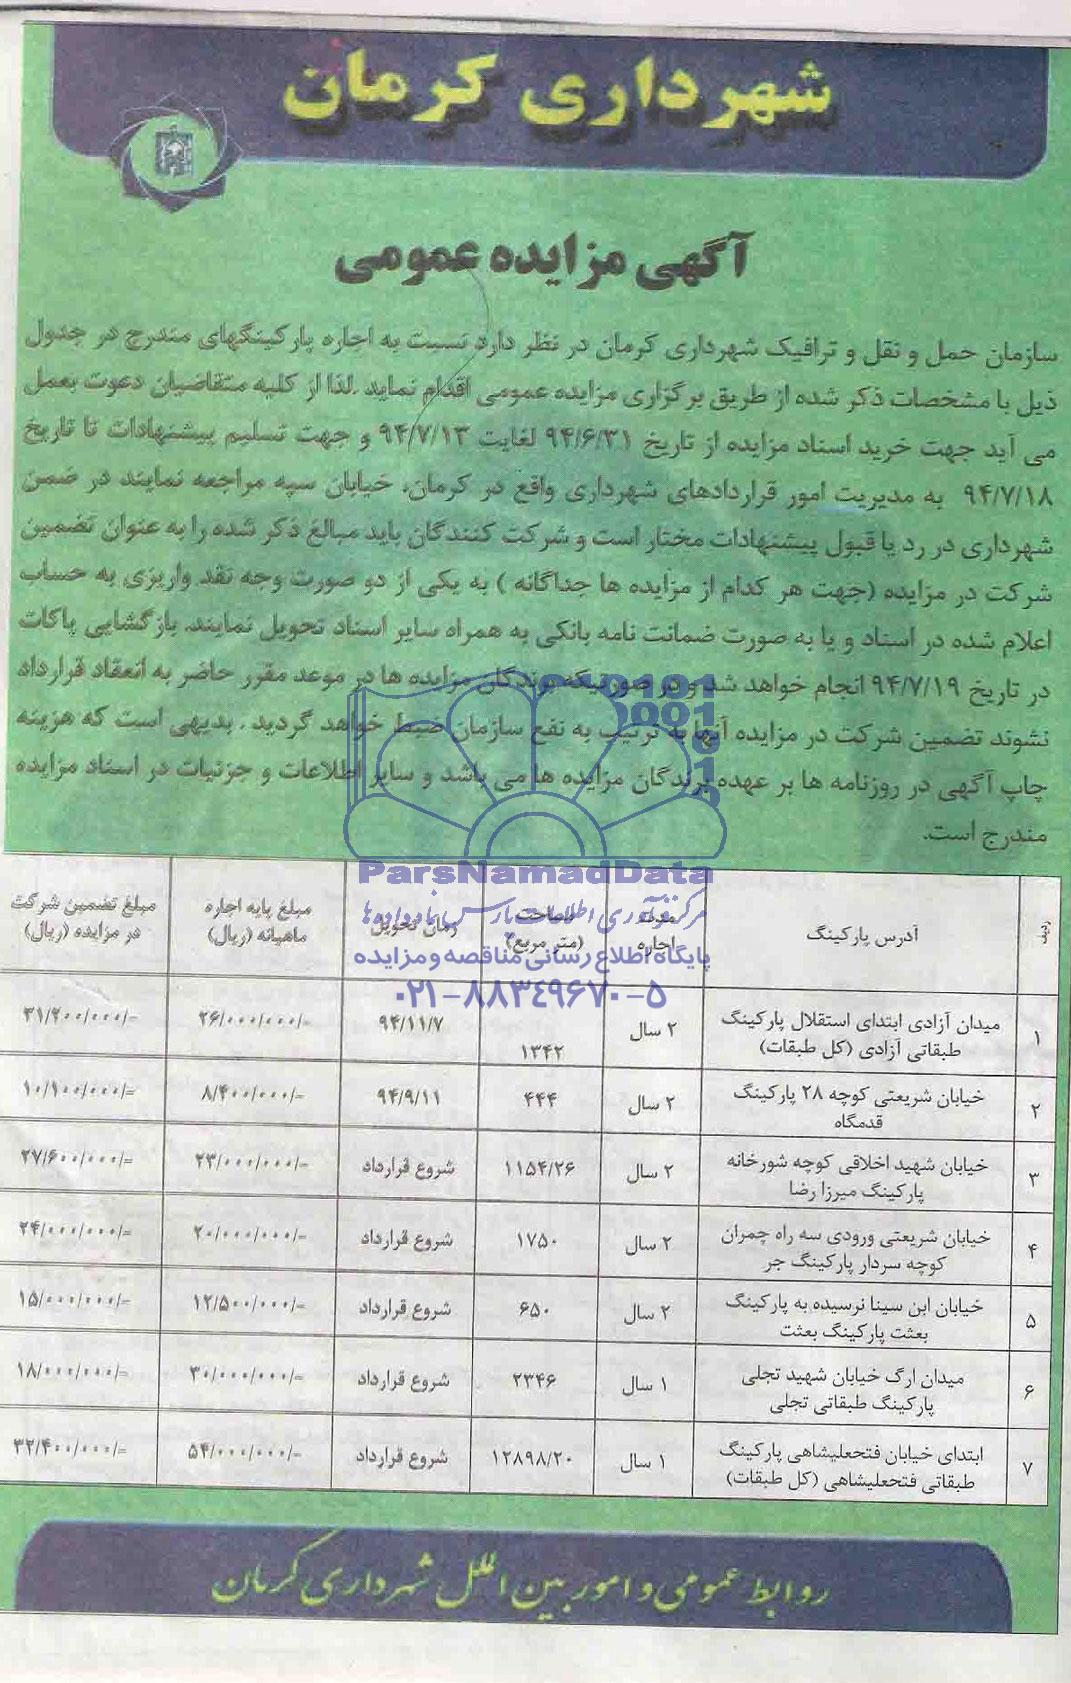 شهرداری کرمان
آگهی مزایده عمومی
سازمان حمل و نقل و ترافیک شهرداری کرمان در نظر دارد نسبت به اجاره پارکینگهای مندرج در جدول
ذیل با مشخصات ذکر شده از طریق برگزاری مزایده عمومی اقدام نماید .لذا از کلیه متقاضیان دعوت بعمل
می آید جهت خرید اسناد مزایده از تاریخ ۹۴/۶/۳۱ لغایت ۹۴/۷/۱۳ و جهت تسلیم پیشنهادات تا تاریخ
۹۴/۷/۱۸ به مدیریت امور قراردادهای شهرداری واقع در کرمان، خیابان سپه مراجعه نمایند در ضمن
شهرداری در رد یا قبول پیشنهادات مختار است و شرکت کنندگان باید مبالغ ذکر شده را به عنوان تضمین
شرکت در مزایده (جهت هر کدام از مزایده ها جداگانه ) به یکی از دو صورت وجه نقد واریزی به حساب
اعلام شده در اسناد و یا به صورت ضمانت نامه بانکی به همراه سایر اسناد تحویل نمایند. بازگشایی پاکات
در تاریخ ۹۴/۷/۱۹ انجام خواهد شد و در صورتیکه برندگان مزایده ها در موعد مقرر حاضر به انعقاد قرارداد
نشوند تضمین شرکت در مزایده آنها به ترتیب به نفع سازمان ضبط خواهد گردید . بدیهی است که هزینه
چاپ آگهی در روزنامه ها بر عهده برندگان مزایده ها می باشد و سایر اطلاعات و جزئیات در اسناد مزایده
مندرج است.
ParsNamadData
مرکز فرآوری اطلاعات پارس نماد داده ها
پایگاه اطلاع رسانی مناقصه و مزایده
۰۲۱-۸۸۳۴۹۶۷۰-۵
ردیف | آدرس پارکینگ | مدت اجاره | مساحت (متر مربع) | زمان تحویل | مبلغ پایه اجاره ماهیانه (ریال) | مبلغ تضمین شرکت در مزایده (ریال)
۱ | میدان آزادی ابتدای استقلال پارکینگ طبقاتی آزادی (کل طبقات) | ۲ سال | ۱۳۴۲ | ۹۴/۱۱/۷ | ۲۶/۰۰۰/۰۰۰/- | ۳۱/۲۰۰/۰۰۰/-
۲ | خیابان شریعتی کوچه ۲۸ پارکینگ قدمگاه | ۲ سال | ۴۴۴ | ۹۴/۹/۱۱ | ۸/۴۰۰/۰۰۰/= | ۱۰/۱۰۰/۰۰۰/=
۳ | خیابان شهید اخلاقی کوچه شورخانه پارکینگ میرزا رضا | ۲ سال | ۱۱۵۴/۲۶ | شروع قرارداد | ۲۳/۰۰۰/۰۰۰/= | ۲۷/۶۰۰/۰۰۰/=
۴ | خیابان شریعتی ورودی سه راه چمران کوچه سردار پارکینگ جر | ۲ سال | ۱۷۵۰ | شروع قرارداد | ۲۰/۰۰۰/۰۰۰/= | ۲۴/۰۰۰/۰۰۰/=
۵ | خیابان ابن سینا نرسیده به پارکینگ بعثت پارکینگ بعثت | ۲ سال | ۶۵۰ | شروع قرارداد | ۱۲/۵۰۰/۰۰۰/= | ۱۵/۰۰۰/۰۰۰/=
۶ | میدان ارگ خیابان شهید تجلی پارکینگ طبقاتی تجلی | ۱ سال | ۲۳۴۶ | شروع قرارداد | ۳۰/۰۰۰/۰۰۰/= | ۱۸/۰۰۰/۰۰۰/=
۷ | ابتدای خیابان فتحعلیشاهی پارکینگ طبقاتی فتحعلیشاهی (کل طبقات) | ۱ سال | ۱۲۸۹۸/۲۰ | شروع قرارداد | ۵۴/۰۰۰/۰۰۰/= | ۳۲/۴۰۰/۰۰۰/=
روابط عمومی و امور بین الملل شهرداری کرمان